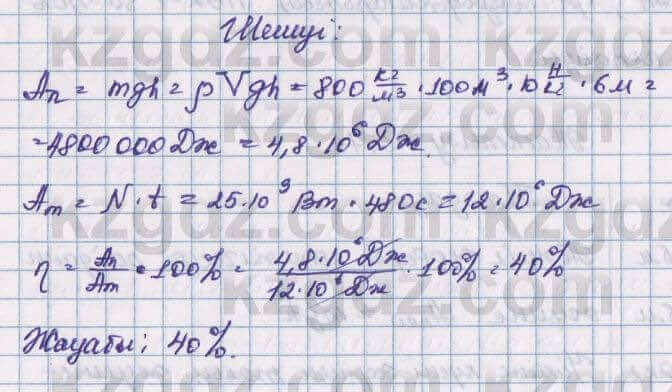 Шешуі:
Aп = mgh = ρVgh = 800 кг/м³ · 100м³ · 10 Н/кг · 6м =
= 4800 000 Дж = 4,8 · 10⁶ Дж.
Aт = N · t = 25 · 10³ Вт · 480с = 12 · 10⁶ Дж
η = Aп/Aт · 100% = 4,8 · 10⁶ Дж/12 · 10⁶ Дж · 100% = 40%
Жауабы: 40%.
kzgdz.com